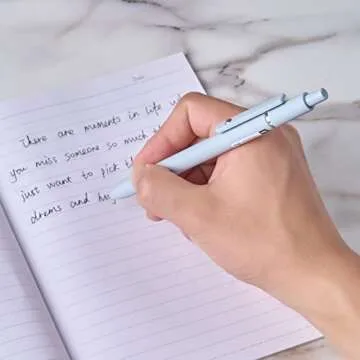 There are moments in life w
you miss someone so much th
just want to pick t
drems and hu